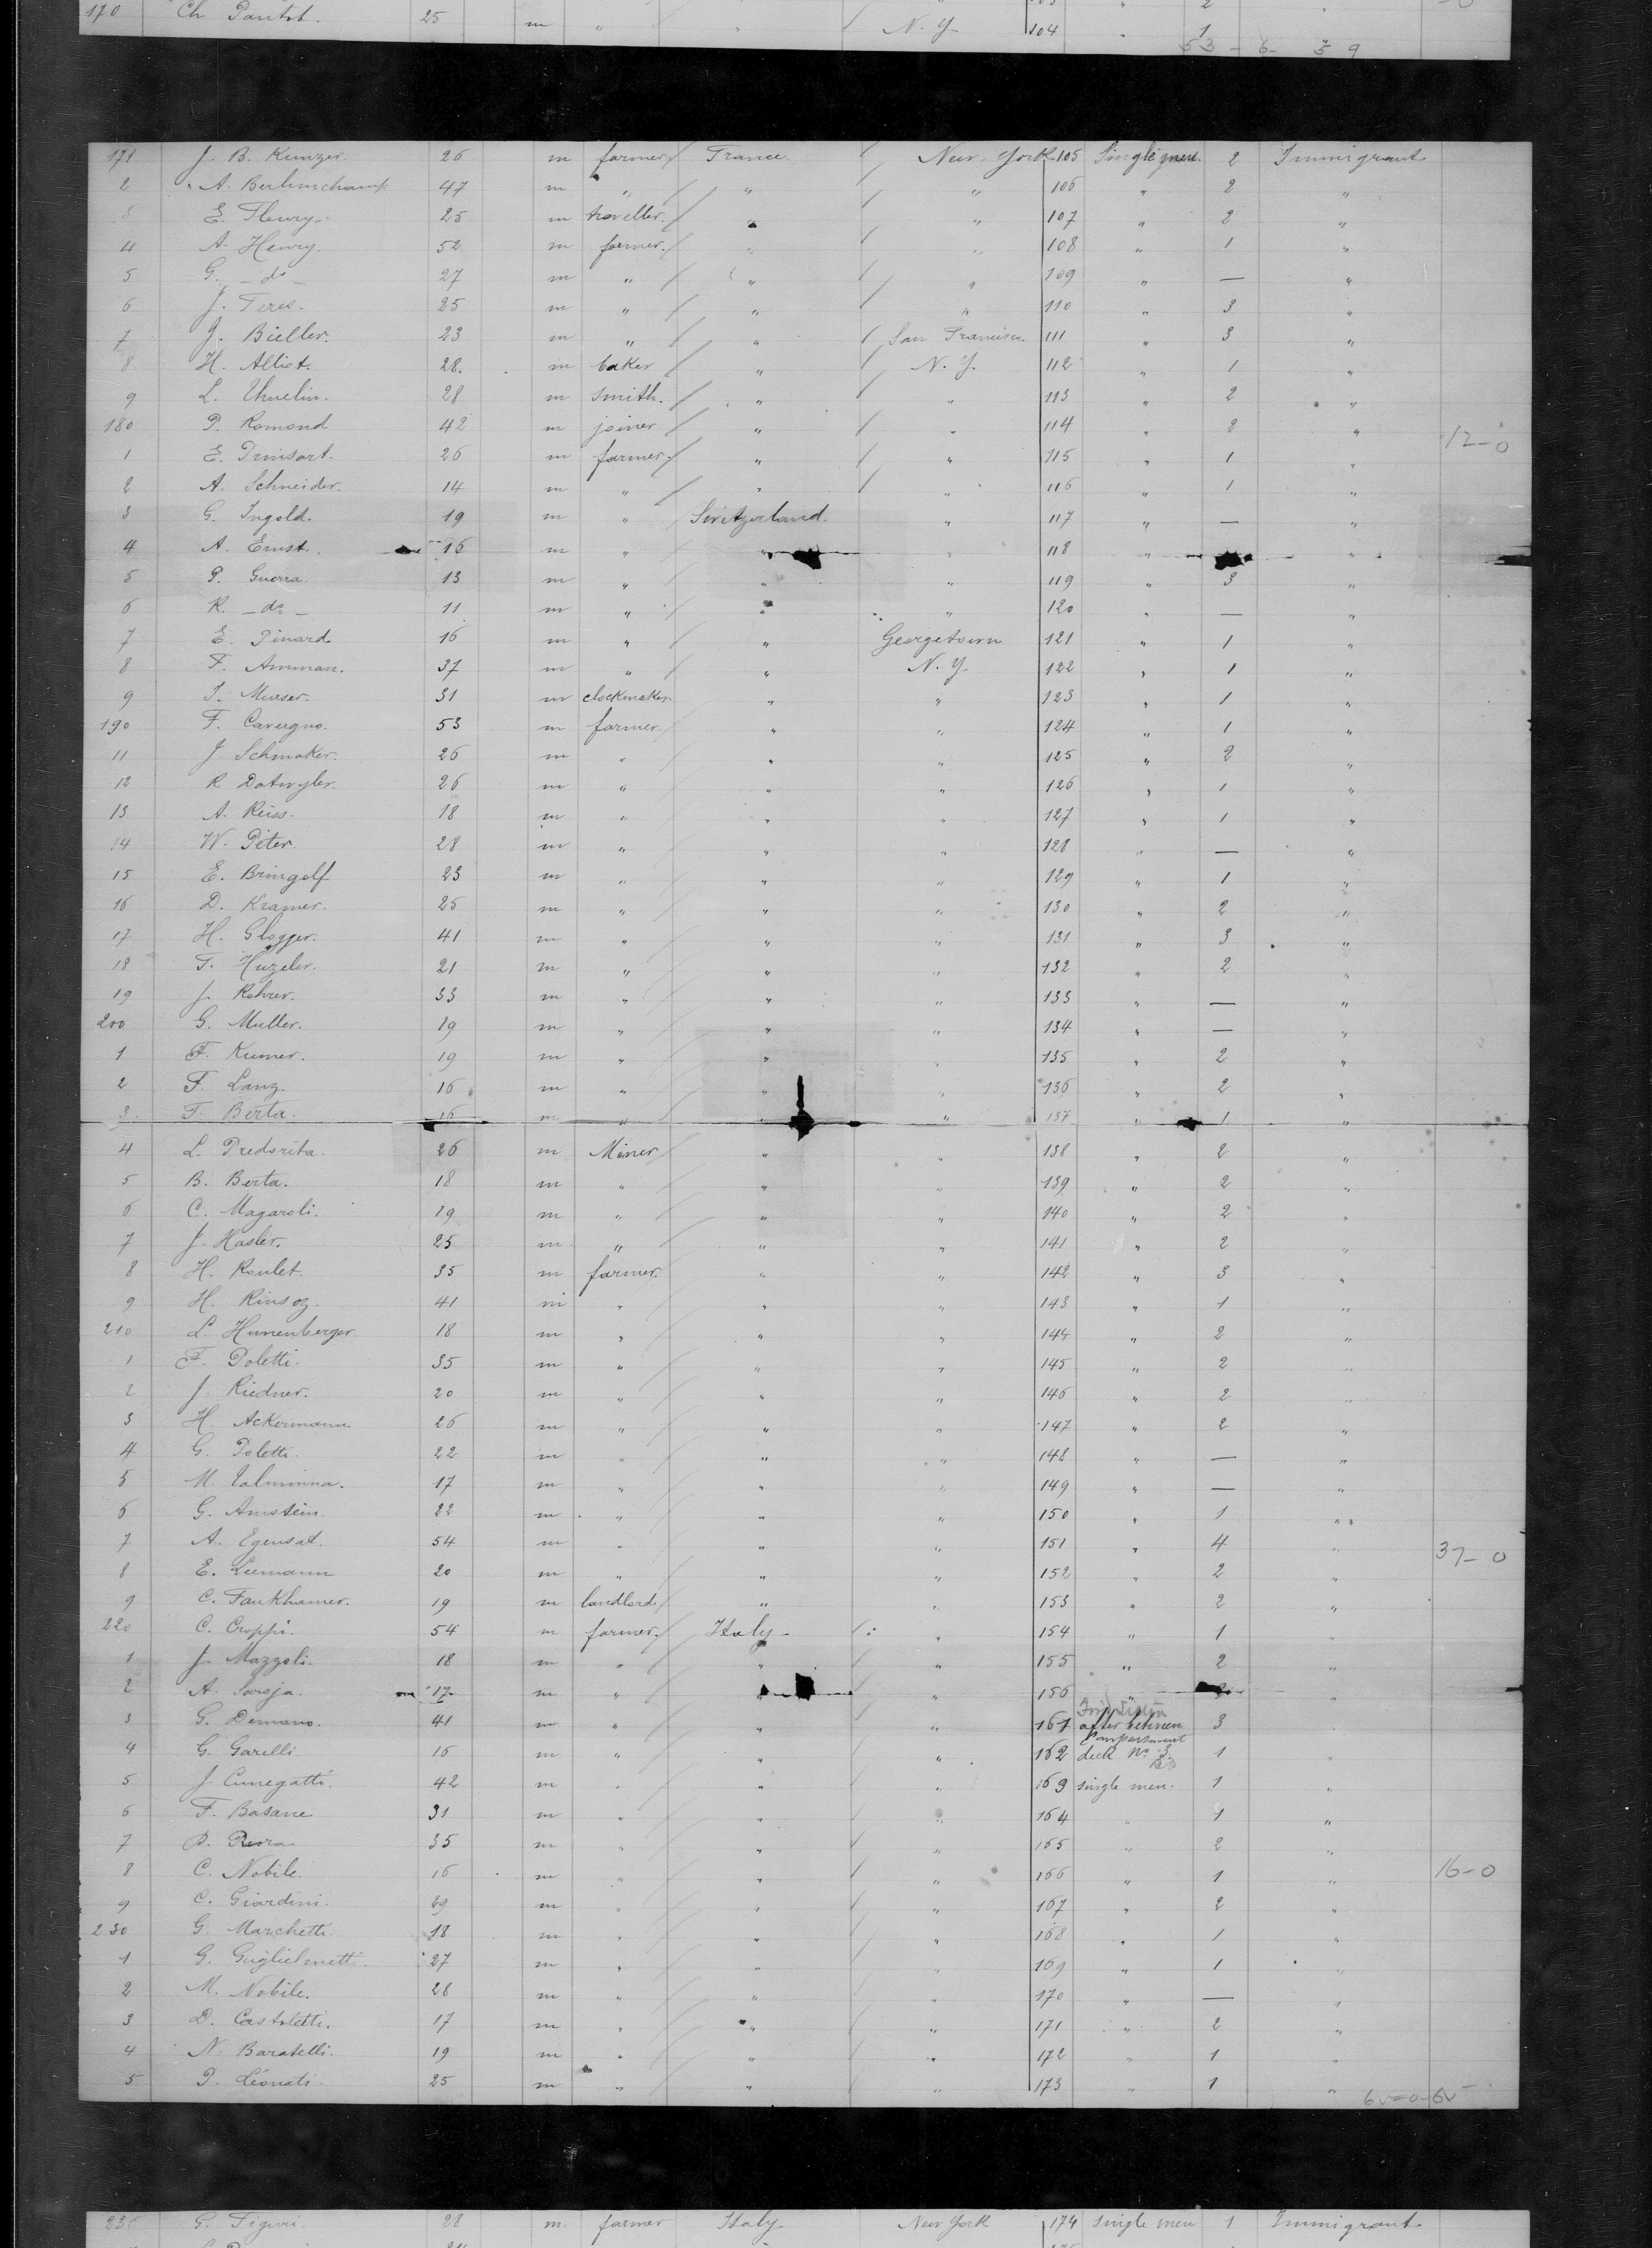 170 Ch 25 m " " N. Y. 104 " 1
53 - 6 - 59
171 J. B. Kunzer. 26 m farmer France New-York 105 Single men. 2 Immigrant
2 A. Berlinchamp 47 m " " " 106 " 2 "
3 E. Fleury. 25 m traveller. " " 107 " 2 "
4 A. Henry. 52 m farmer. " " 108 " 1 "
5 G. - do - 27 m " " " 109 " — "
6 J. Feres. 25 m " " " 110 " 3 "
7 J. Bieller. 23 m " " San Francisco. 111 " 3 "
8 H. Alliot. 28. m baker " N. Y. 112 " 1 "
9 L. Thuelin. 28 m smith. " " 113 " 2 "
180 P. Romond 42 m joiner " " 114 " 2 " 12-0
1 E. Prinsart. 26 m farmer. " " 115 " 1 "
2 A. Schneider. 14 m " " " 116 " 1 "
3 G. Ingold. 19 m " Switzerland. " 117 " — "
4 A. Ernst. 16 m " " " 118 " "
5 P. Guerra. 13 m " " " 119 " 3 "
6 R. - do - 11 m " " " 120 " — "
7 E. Pinard 16 m " " Georgetown 121 " 1 "
8 F. Amman. 37 m " " N. Y. 122 " 1 "
9 J. Murser. 31 m clockmaker " " 123 " 1 "
190 F. Cavergno. 53 m farmer. " " 124 " 1 "
11 J. Schmaker. 26 m " " " 125 " 2 "
12 R. Datwyler. 26 m " " " 126 " 1 "
13 A. Reiss. 18 m " " " 127 " 1 "
14 W. Peter. 28 m " " " 128 " — "
15 E. Bringolf 23 m " " " 129 " 1 "
16 D. Kramer. 25 m " " " 130 " 2 "
17 H. Glogger. 41 m " " " 131 " 3 "
18 F. Huzeler. 21 m " " " 132 " 2 "
19 J. Rohrer. 33 m " " " 133 " — "
200 G. Muller. 19 m " " " 134 " — "
1 F. Kumer. 19 m " " " 135 " 2 "
2 F. Lanz 16 m " " " 136 " 2 "
3. F. Berta. 16 m " " " 137 " 1 "
4 L. Predorita. 26 m Miner " " 138 " 2 "
5 B. Berta. 18 m " " " 139 " 2 "
6 C. Magaroli. 19 m " " " 140 " 2 "
7 J. Hasler. 25 m " " " 141 " 2 "
8 H. Roulet. 35 m farmer. " " 142 " 3 "
9 H. Rinsoz. 41 m " " " 143 " 1 "
210 L. Hunenberger. 18 m " " " 144 " 2 "
1 F. Poletti. 35 m " " " 145 " 2 "
2 J. Riedner. 20 m " " " 146 " 2 "
3 H. Ackermann 26 m " " " 147 " 2 "
4 G. Poletti. 22 m " " " 148 " — "
5 M. 17 m " " " 149 " — "
6 G. Amstein. 22 m " " " 150 " 1 "
7 A. Egensat. 54 m " " " 151 " 4 " 37-0
8 E. Liemann 20 m " " " 152 " 2 "
9 C. Fankhamer. 19 m landlord " " 153 " 2 "
220 C. Croppi. 54 m farmer. Italy " 154 " 1 "
1 J. Mazzoli. 18 m " " " 155 " 2 "
2 A. 17 m " " " 156 " "
3 G. Demaro. 41 m " " " 161 after between 3 "
Compartment
4 G. Garelli. 16 m " " " 162 deck No 3. 1 "
5 J. Cunegatti. 42 m " " " 163 single men. 1 "
6 F. Basane 31 m " " " 164 " 1 "
7 P. Reora 35 m " " " 165 " 2 "
8 C. Nobile. 16 m " " " 166 " 1 " 16-0
9 C. Giardini. 29 m " " " 167 " 2 "
230 G. Marchetti. 18 m " " " 168 " 1 "
1 G. Guglielmetti. 27 m " " " 169 " 1 "
2 M. Nobile. 28 m " " " 170 " — "
3 D. Castoletti. 17 m " " " 171 " 2 "
4 N. Baratelli. 19 m " " " 172 " 1 "
5 P. Leonati. 25 m " " " 173 " 1 "
236 G. 28 m. farmer Italy New York 174 single men 1 Immigrant